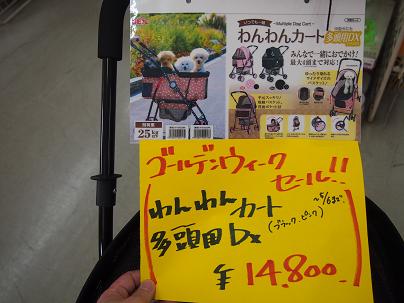 いつでも一緒
~Multiple Dog Cart~
わんわんカート
多頭用DX
みんなで一緒におでかけ!
最大4頭まで対応!
25kg
ゴールデンウィーク
セール!!
わんわんカート
~5/6まで
(ブラック、ピンク)
多頭用Dx
¥14,800.